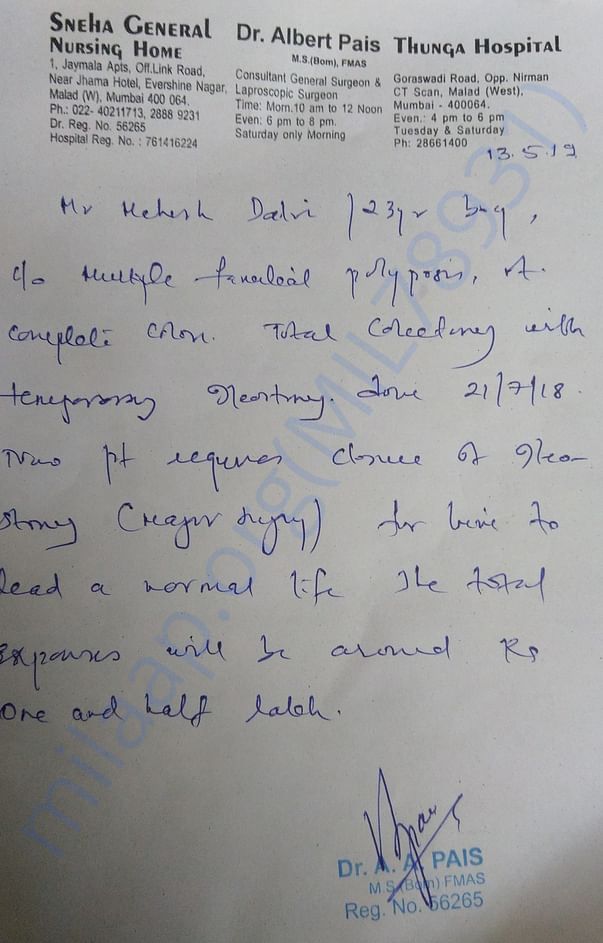 SNEHA GENERAL
NURSING HOME
1, Jaymala Apts, Off.Link Road,
Near Jhama Hotel, Evershine Nagar,
Malad (W), Mumbai 400 064.
Ph.: 022- 40211713, 2888 9231
Dr. Reg. No. 56265
Hospital Reg. No. : 761416224
Dr. Albert Pais
M.S.(Bom), FMAS
Consultant General Surgeon &
Laproscopic Surgeon
Time: Morn.10 am to 12 Noon
Even: 6 pm to 8 pm.
Saturday only Morning
THUNGA HOSPITAL
Goraswadi Road, Opp. Nirman
CT Scan, Malad (West),
Mumbai - 400064.
Even.: 4 pm to 6 pm
Tuesday & Saturday
Ph: 28661400
13.5.19
Mr Mehesh Dalvi 23yr boy,
c/o Multiple polyposis, of
complete colon. Total with
temporary done 21/7/18.
Now pt requires closure of Ileo-
stomy (major surgery) for him to
lead a normal life The total
expenses will be around Rs
One and half lakh.
Dr. A. A. PAIS
M.S.(Bom) FMAS
Reg. No. 56265
milaap.org(MIL78931)